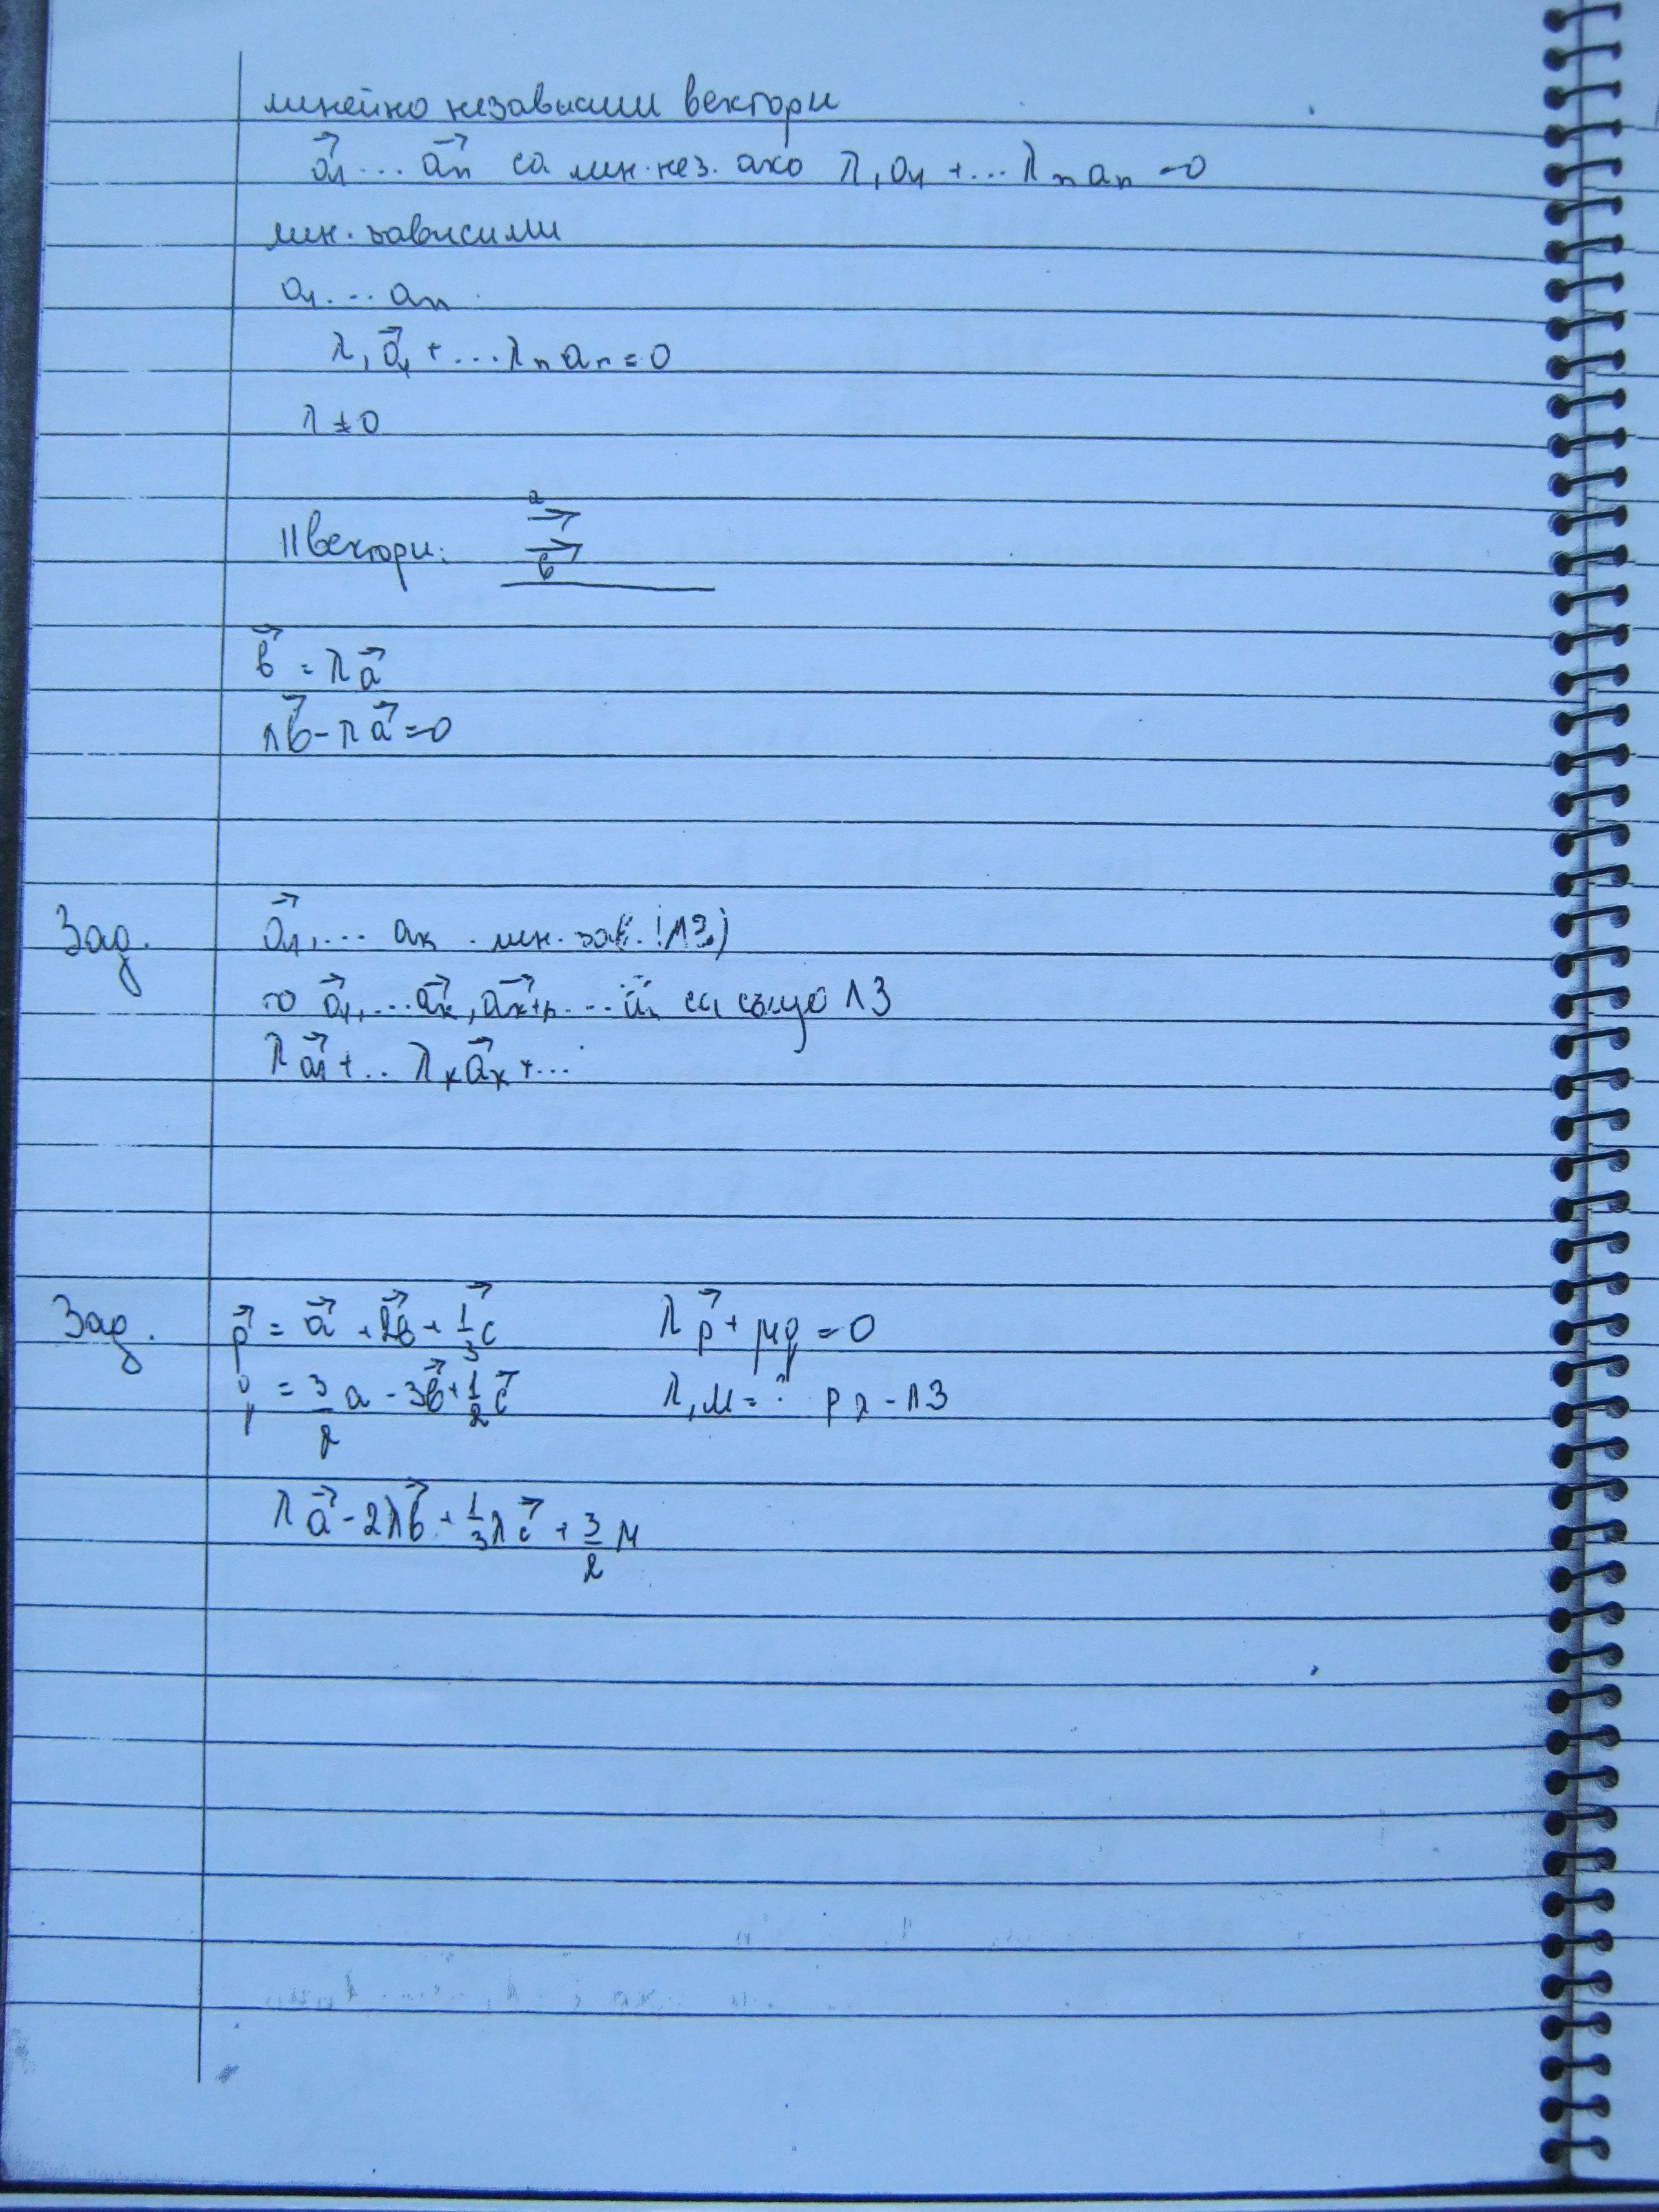 линейно независими вектори
a₁ ... aₙ са лин. нез. ако λ₁a₁ + ... λₙaₙ = 0
лин. зависими
a₁ ... aₙ
λ₁a₁ + ... λₙaₙ = 0
λ ≠ 0
a
|| вектори:
b
b = λa
λb - λa = 0
Зад. a₁, ... aₖ лин. зав. (ЛЗ)
a₁, ... aₖ, aₖ₊₁ ... са също ЛЗ
λa₁ + ... λₖaₖ + ...
Зад. p = a + 2b + 1/3 c λp + μq = 0
= 3/2 a - 3b + 1/2 c λ, μ = ? - ЛЗ
λa - 2λb + 1/3 λc + 3/2 μ